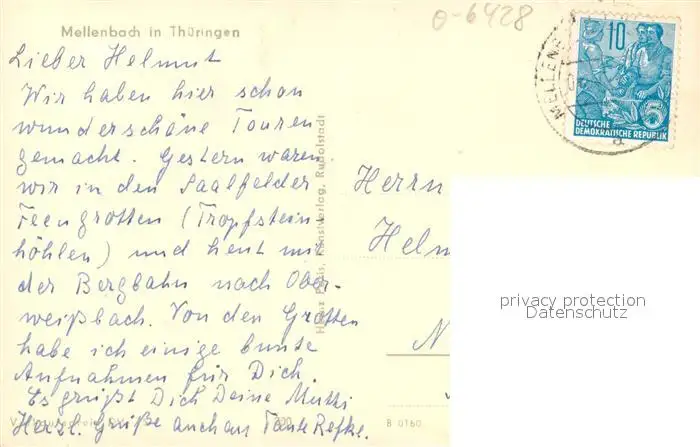 Mellenbach in Thüringen
0-6428
Lieber Helmut
Wir haben hier schon
wunderschöne Touren
gemacht. Gestern waren
wir in den Saalfelder
Feengrotten (Tropfstein-
höhlen) und heut mit
der Bergbahn nach Ober-
weißbach. Von den Grotten
habe ich einige bunte
Aufnahmen für Dich.
Es grüßt Dich Deine Mutti
Herzl. Grüße auch an Tante Refke.
Kunstverlag, Rudolstadt
10
DEUTSCHE
DEMOKRATISCHE REPUBLIK
MELLENB
a
Herrn
Helm
N
privacy protection
Datenschutz
B 0160